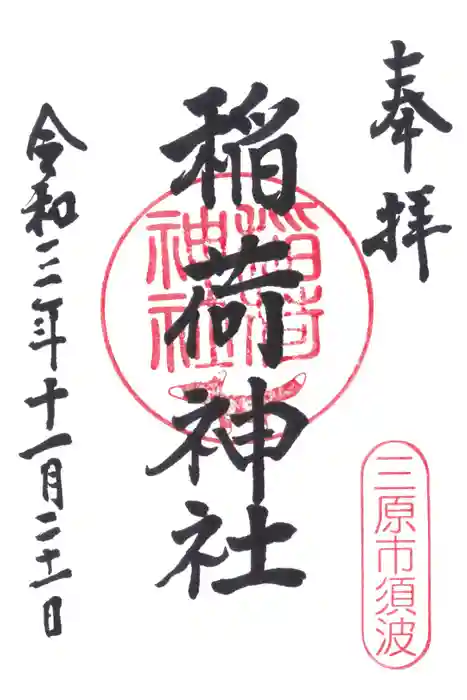 奉拝
三原市須波
稲荷神社
稲荷
神社
令和三年十一月二十一日